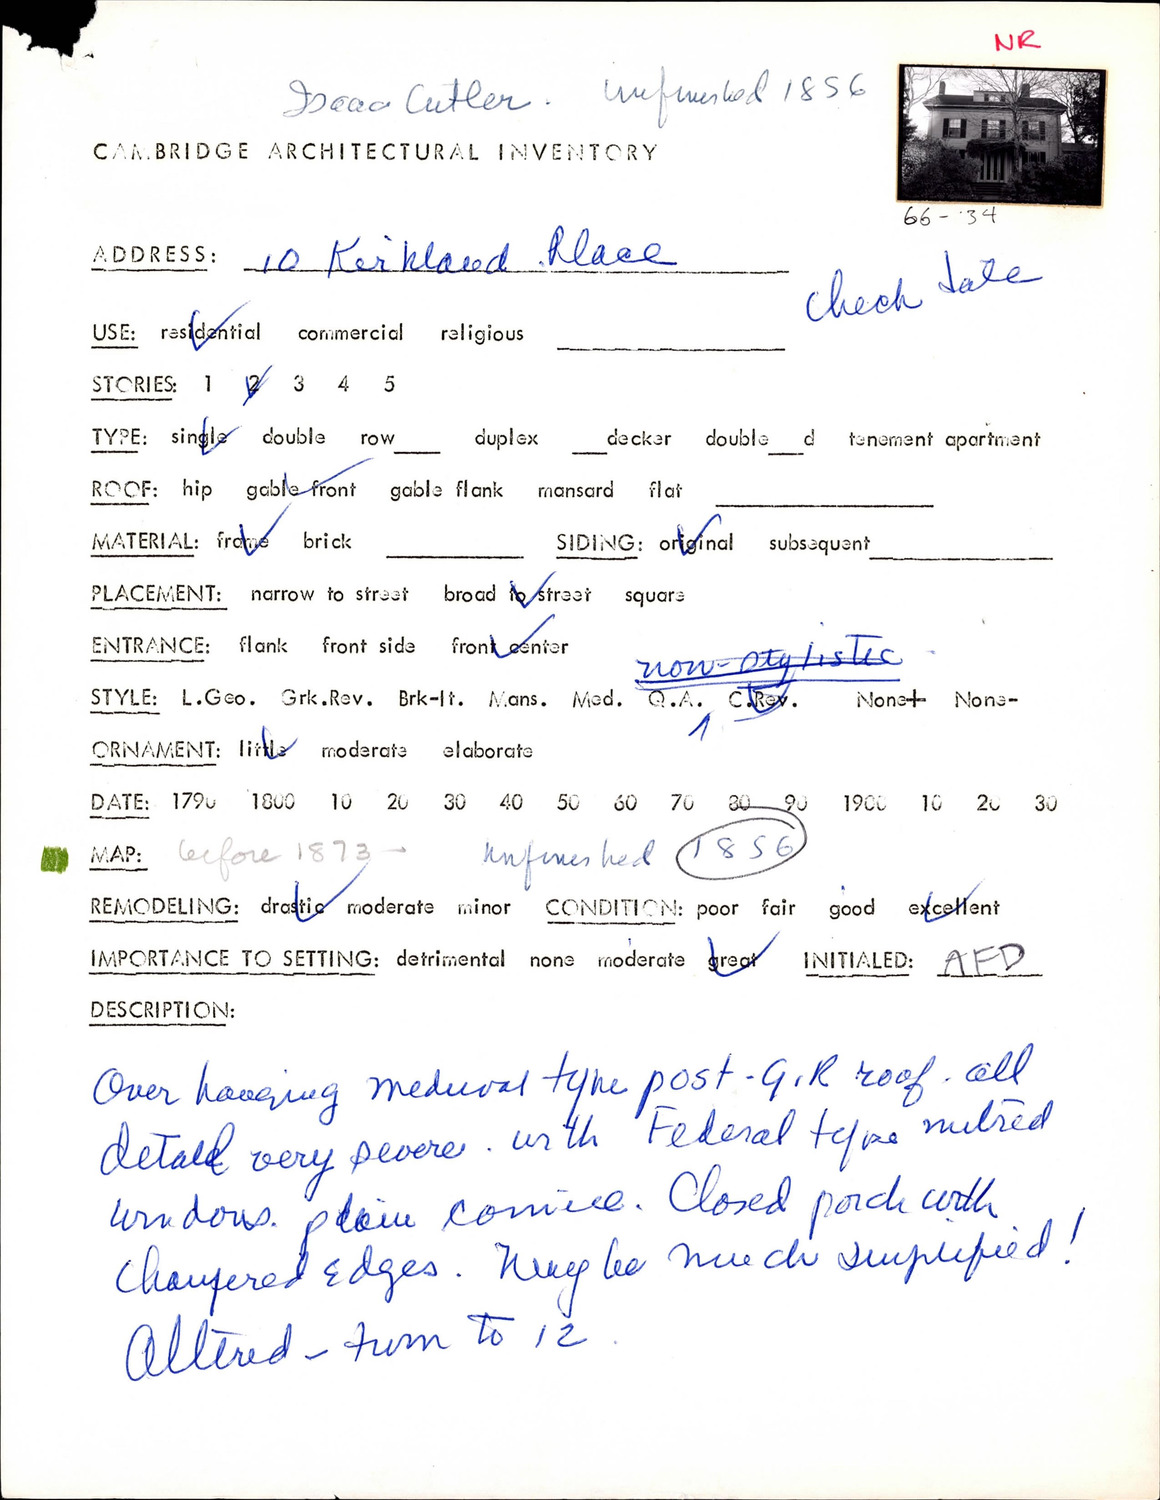 NR
Isaac Cutler. unfinished 1856
CAMBRIDGE ARCHITECTURAL INVENTORY
66-34
ADDRESS: 10 Kirkland Place
check date
USE: residential commercial religious
STORIES: 1 2 3 4 5
TYPE: single double row___ duplex ___decker double___d tenement apartment
ROOF: hip gable front gable flank mansard flat
MATERIAL: frame brick ________ SIDING: original subsequent________
PLACEMENT: narrow to street broad to street square
ENTRANCE: flank front side front center
non-stylistic
STYLE: L.Geo. Grk.Rev. Brk-It. Mans. Med. Q.A. C.Rev. None+ None-
ORNAMENT: little moderate elaborate
DATE: 1790 1800 10 20 30 40 50 60 70 80 90 1900 10 20 30
MAP: before 1873 - unfinished 1856
REMODELING: drastic moderate minor CONDITION: poor fair good excellent
IMPORTANCE TO SETTING: detrimental none moderate great INITIALED: AFD
DESCRIPTION:
Over hanging medieval type post-G.R roof. all
detail very severe. with Federal type mitred
windows. plain cornice. Closed porch with
chamfered edges. Maybe much simplified!
Altered - turn to 12